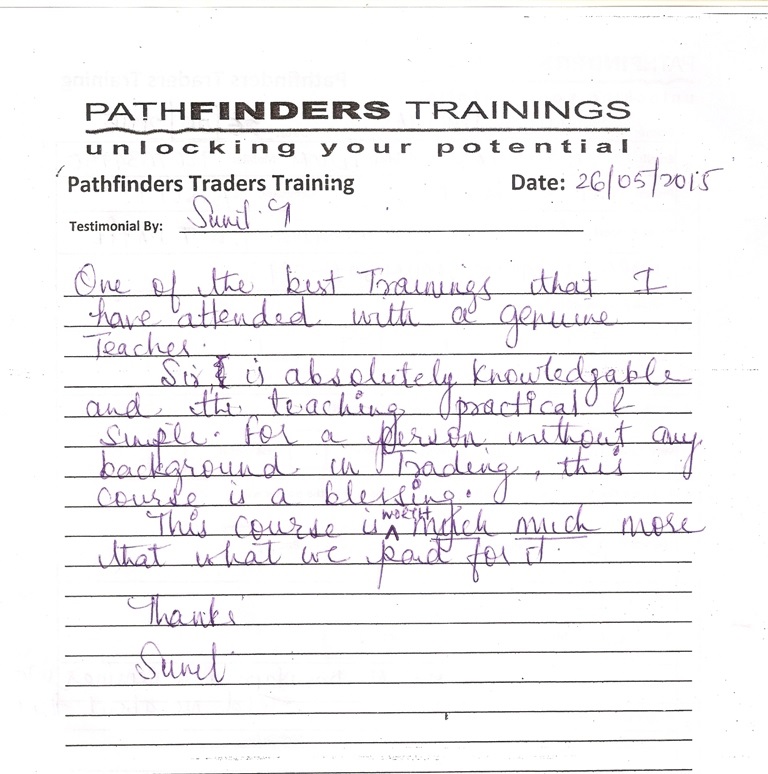 PATHFINDERS TRAININGS
unlocking your potential
Pathfinders Traders Training Date: 26/05/2015
Testimonial By: Sunil. G
One of the best Trainings that I
have attended with a genuine
Teacher.
Sir is absolutely knowledgable
and the teaching practical &
simple. For a person without any
background in Trading, this
course is a blessing.
This course is worth much much more
that what we paid for it.
Thanks
Sunil